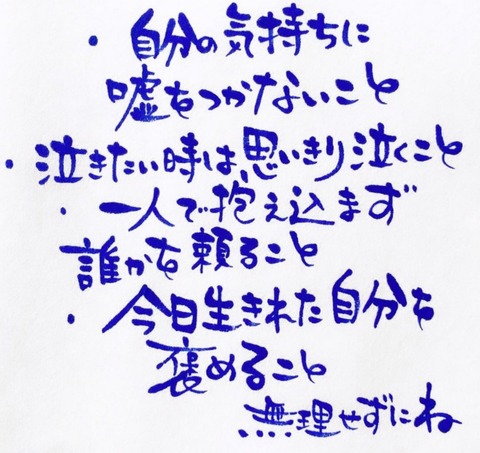 ・自分の気持ちに
嘘をつかないこと
・泣きたい時は、思いきり泣くこと
・一人で抱え込まず
誰かを頼ること
・今日生きれた自分を
褒めること
無理せずにね